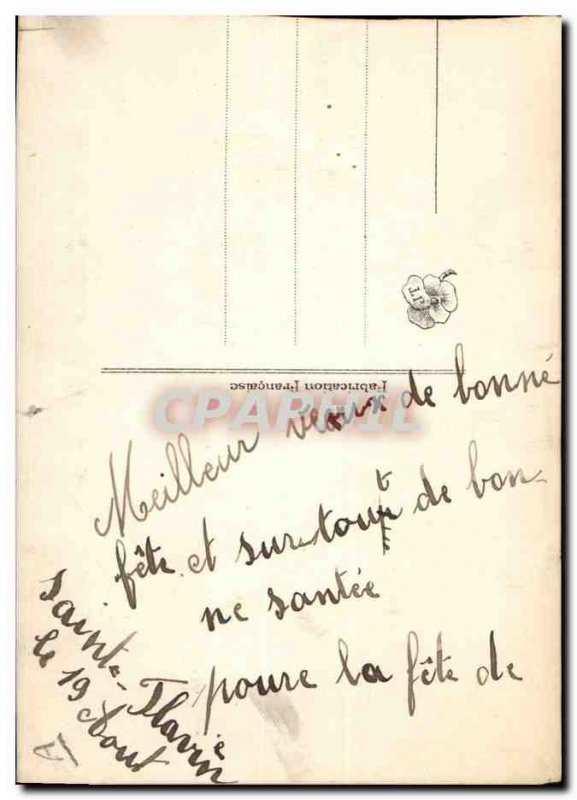 Fabrication Française
CPARHIL
Meilleur veaux de bonné
fête et surtout de bon-
ne santée
poure la fête de
Sainte-Flavie
le 19 Aout